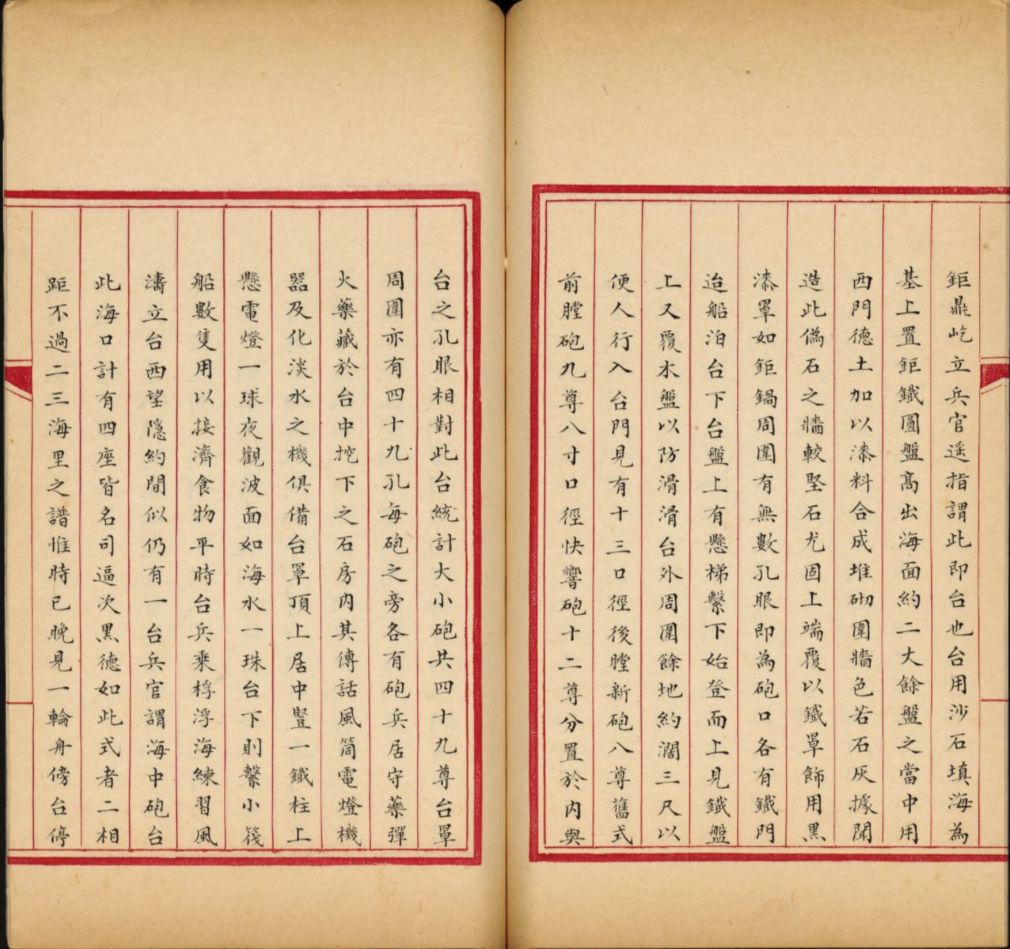 鉅鼎屹立兵官遥指謂此即台也台用沙石填海為
基上置鉅鐵圓盤高出海面約二大餘盤之當中用
西門德土加以漆料合成堆砌圍牆色若石灰據聞
造此偽石之牆較堅石尤固上端覆以鐵罩飾用黑
漆罩如鉅鍋周圍有無數孔眼即為砲口各有鐵門
迨船泊台下台盤上有懸梯繫下始登而上見鐵盤
上又覆木盤以防滑滑台外周圍餘地約濶三尺以
便人行入台門見有十三口徑後膛新砲八尊舊式
前膛砲九尊八寸口徑快響砲十二尊分置於内與
台之孔眼相對此台統計大小砲共四十九尊台罩
周圍亦有四十九孔每砲之旁各有砲兵居守藥彈
火藥藏於台中挖下之石房内其傳話風筒電燈機
器及化淡水之機俱備台罩頂上居中豎一鐵柱上
懸電燈一球夜觀波面如海水一珠台下則繫小筏
船數隻用以接濟食物平時台兵乘桴浮海練習風
濤立台西望隱約間似仍有一台兵官謂海中砲台
此海口計有四座皆名司逼次黑德如此式者二相
距不過二三海里之譜惟時已晚見一輪舟傍台停